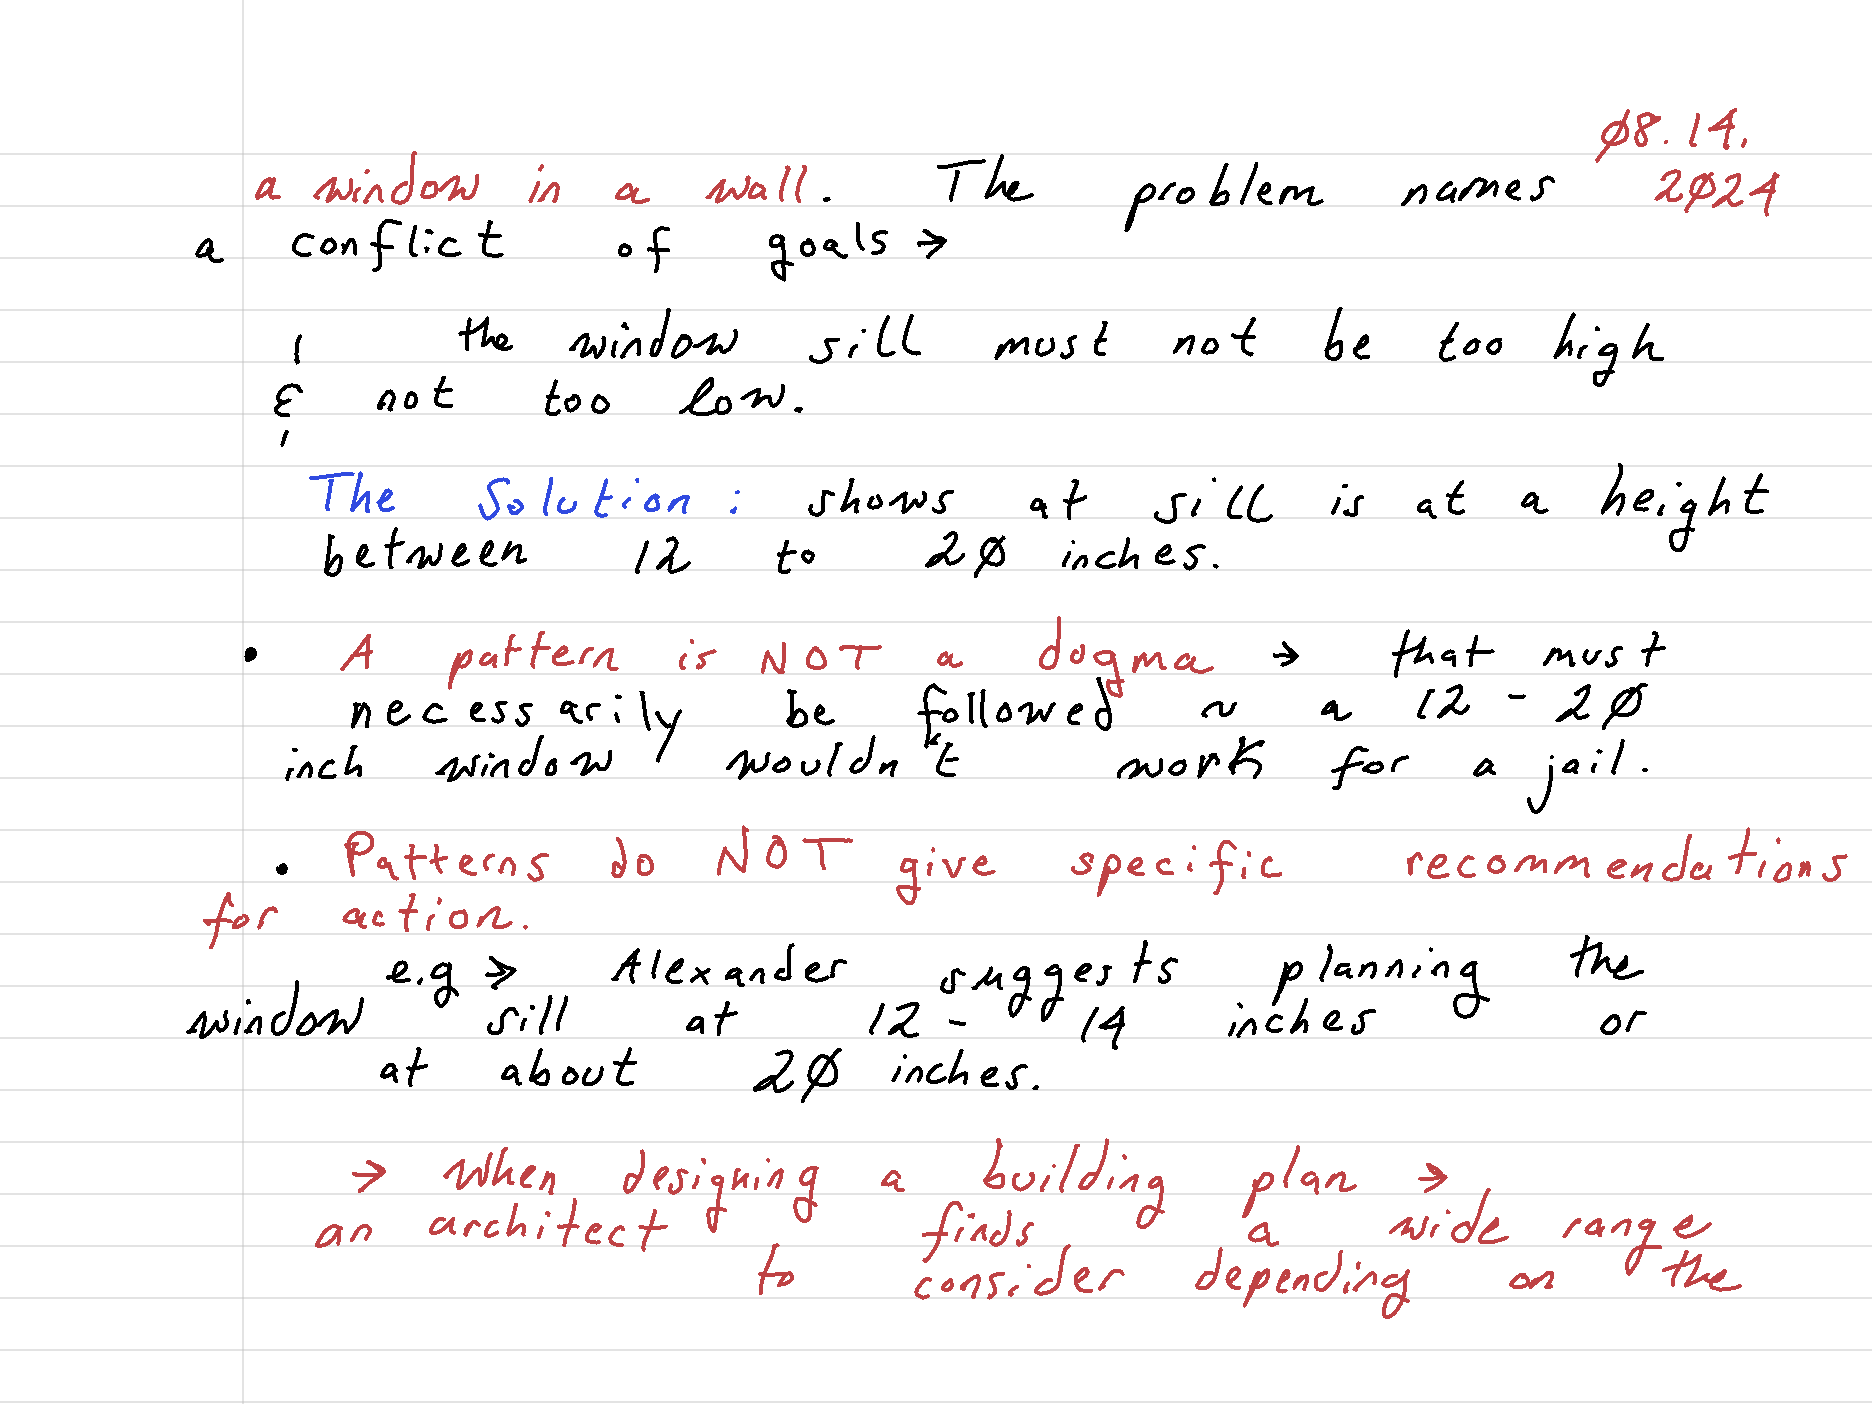 ø8.14.
a window in a wall. The problem names 2ø24
a conflict of goals →
the window sill must not be too high
& not too low.
The Solution: shows at sill is at a height
between 12 to 2ø inches.
• A pattern is NOT a dogma → that must
necessarily be followed ~ a 12 - 2ø
inch window wouldn't work for a jail.
• Patterns do NOT give specific recommendations
for action.
e.g → Alexander suggests planning the
window sill at 12 - 14 inches or
at about 2ø inches.
→ When designing a building plan →
an architect finds a wide range
to consider depending on the